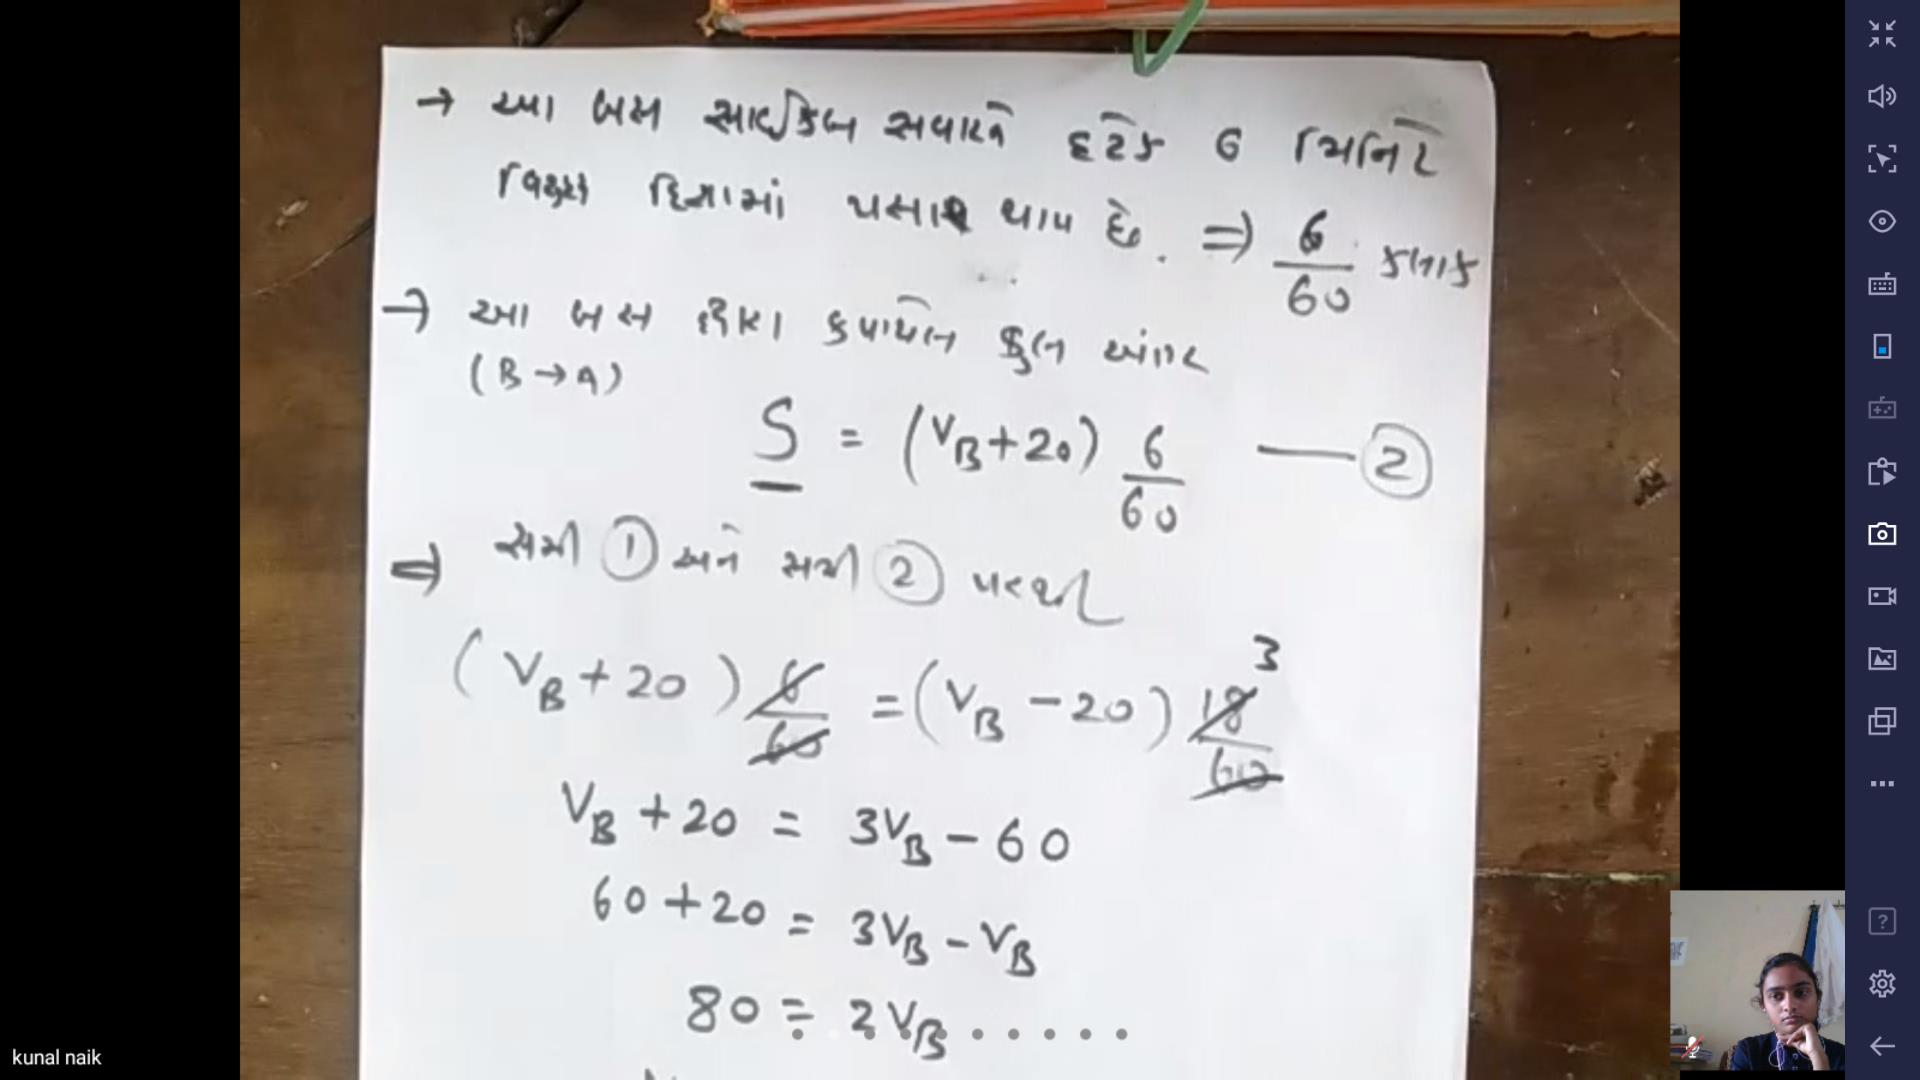 → આ બસ સાઇકલ સવારને દરેક 6 મિનિટે
વિરુદ્ધ દિશામાં પસાર થાય છે. ⇒ 6/60 કલાક
→ આ બસ દ્વારા કપાયેલ કુલ અંતર
(B → A)
S = (V_B + 20) 6/60 — ②
⇒ સમી ① અને સમી ② પરથી
(V_B + 20) 6/60 = (V_B - 20) 18/60 3
V_B + 20 = 3V_B - 60
60 + 20 = 3V_B - V_B
80 = 2V_B
kunal naik